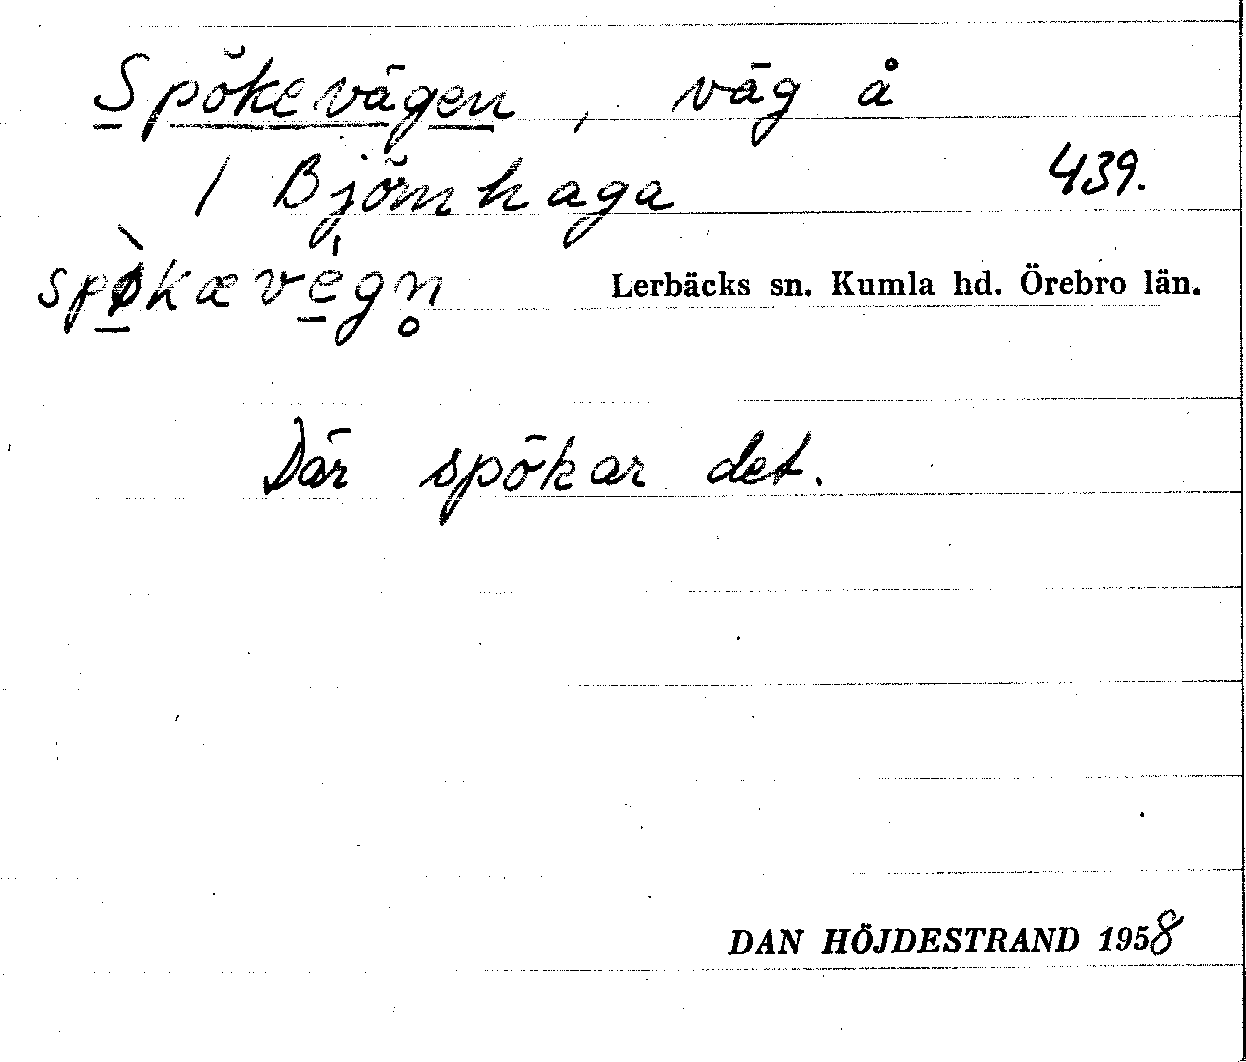 Spökevägen, väg å
1 Björnhaga 439.
spø̀kævégn̥ Lerbäcks sn. Kumla hd. Örebro län.
Där spökar det.
DAN HÖJDESTRAND 1958